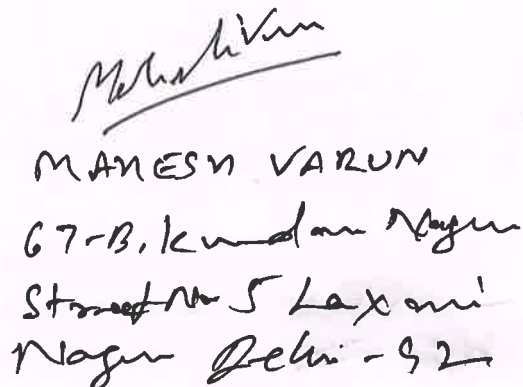 Mahesh Varun
MAHESH VARUN
67-B, Kundan Nagar
Street No 5 Laxmi
Nagar Delhi - 92